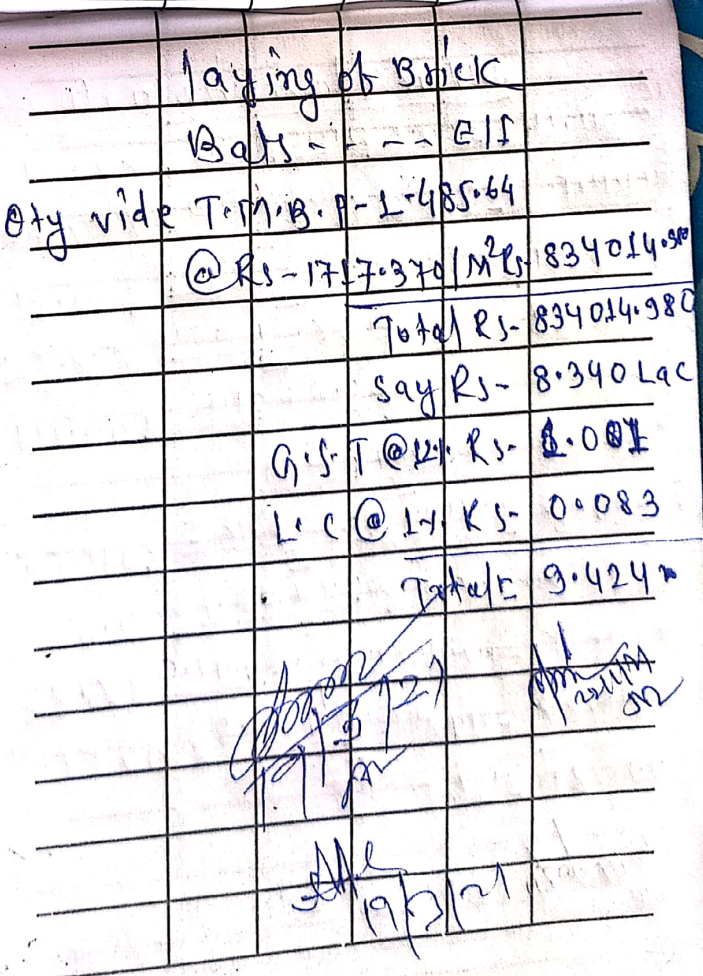 laying of Brick
Bats - - - - E/I
Qty vide T.M.B. P-1-485.64
@ Rs-1717.370/M² Rs- 834014.980
Total Rs- 834014.980
Say Rs- 8.340 Lac
G.S.T @ 12% Rs- 1.001
L.C @ 1% Rs- 0.083
Total= 9.424
19/3/21
19/3/21